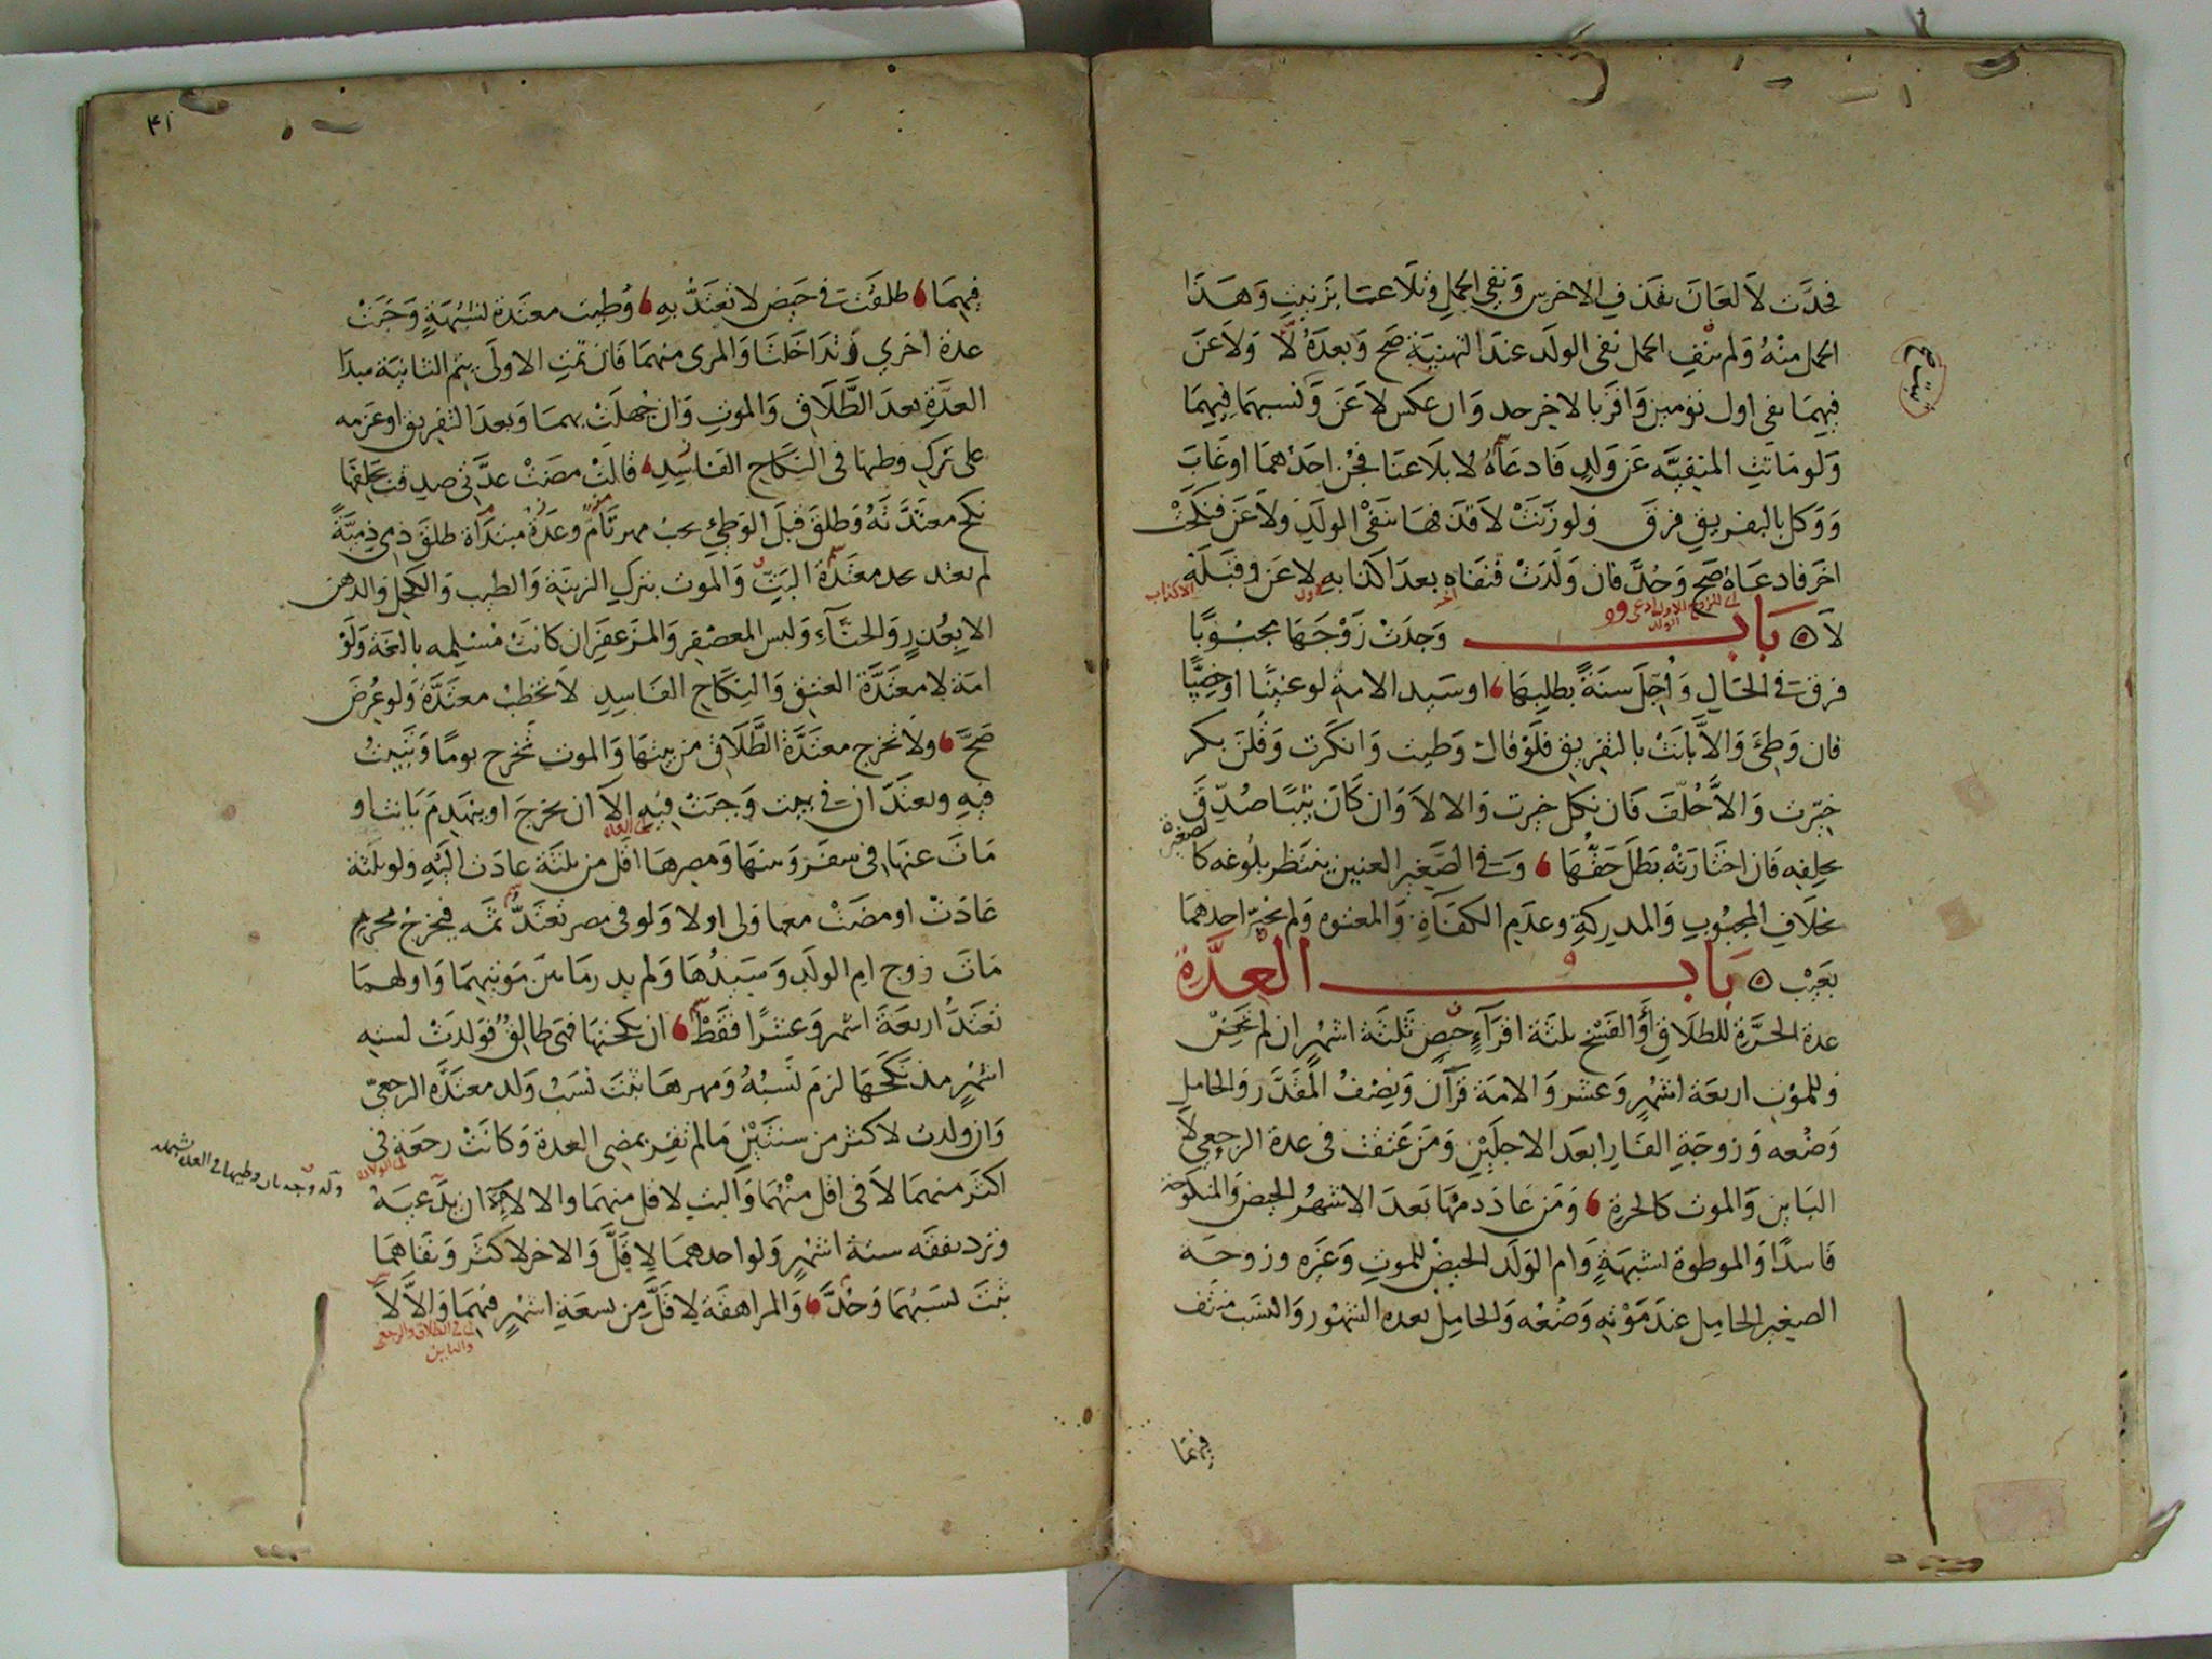 فحدت لا لعان بقذف الاخرس ونفي الحمل وتلاعنا بزنيت وهذا
الحمل منه ولم ينف الحمل نفى الولد عند التهنية صح وبعده لا ولاعن
فيهما نفى اول تومين واقر بالاخر حد وان عكس لاعن ونسبهما فيهما
ولو ماتت المنفية عن ولد فادعاه لا بلاعنا فجن احدهما او غاب
ووكل بالتفريق فرق ولو زنت لا قذفها بنفي الولد ولاعن فنكحت
اخر فادعاه صح وحد فان ولدت فنفاه بعد اكذابه لاعن وقبله
لا باب وجدت زوجها مجبوبا
فرقت في الحال واجل سنة بطلبها او سيد الامة لو عنينا او خصيا
فان وطئ والا بانت بالتفريق فلو قال وطيت وانكرت وقلن بكر
خيرت والا حلف فان نكل خيرت والا لا وان كان ثيبا صدق
بحلفه فان اختارته بطل حقها وفي الصغير العنين ينتظر بلوغه كالصغيرة
بخلاف المجبوب والمدركة وعدم الكفاة والمعتوه ولم يخير احدهما
بعيب باب العدة
عدة الحرة للطلاق او الفسخ ثلثة اقراء حيض ثلثة اشهر ان لم تحض
وللموت اربعة اشهر وعشر والامة قرآن ونصف المقدر والحامل
وضعه وزوجة الفار ابعد الاجلين ومن عتقت في عدة الرجعي لا
البائن والموت كالحرة ومن عاد دمها بعد الاشهر الحيض والمنكوحة
فاسدا والموطوة بشبهة وام الولد الحيض للموت وغيره وزوجة
الصغير الحامل عند موته وضعه والحامل بعده الشهور والنسب منتف
فيهما
٤١
فيهما طلقت في حيض لا تعتد به وطيت معتدة لشبهة وجبت
عدة اخرى وتداخلتا والمرى منهما فان تمت الاولى يتم الثانية مبدا
العدة بعد الطلاق والموت وان جهلت بهما وبعد التفريق او عزمه
على ترك وطيها في النكاح الفاسد قالت مضت عدتي صدقت بحلفها
نكح معتدته وطلق قبل الوطئ يجب مهر تام وعدة مبتداة طلق ذمي ذمية
لم تعتد تحد معتدة البت والموت بترك الزينة والطيب والكحل والدهن
الا بعذر والحناء ولبس المعصفر والمزعفر ان كانت مسلمه بالغة ولو
امة لا معتدة العتق والنكاح الفاسد لا تخطب معتدة ولو عرض
صح ولا تخرج معتدة الطلاق من بيتها والموت تخرج يوما وتبيت
فيه وتعتدان في بيت وجبت فيه الا ان تخرج او ينهدم بانت او
مات عنها في سفر وبينها ومصرها اقل من ثلثة عادت اليه ولو ثلثة
عادت او مضت معها ولي او لا ولو في مصر تعتد ثمه فيخرج بمحرم
مات زوج ام الولد وسيدها ولم يدر ما بين موتيهما واولهما
تعتد اربعة اشهر وعشرا فقط ان نكحتها فهي طالق فولدت لسته
اشهر مذ نكحها لزم نسبه ومهرها ثبت نسب ولد معتدة الرجعي
وان ولدت لاكثر من سنتين ما لم تقر بمضي العدة وكانت رجعة في
اكثر منهما لا في اقل منهما والبت لاقل منهما والا لا الا ان يدعيه
وترد نفقه ستة اشهر ولو احدهما لاقل والاخر لاكثر ونفاهما
ثبت نسبهما وحد والمراهقة لاقل من تسعة اشهر فيهما والا لا